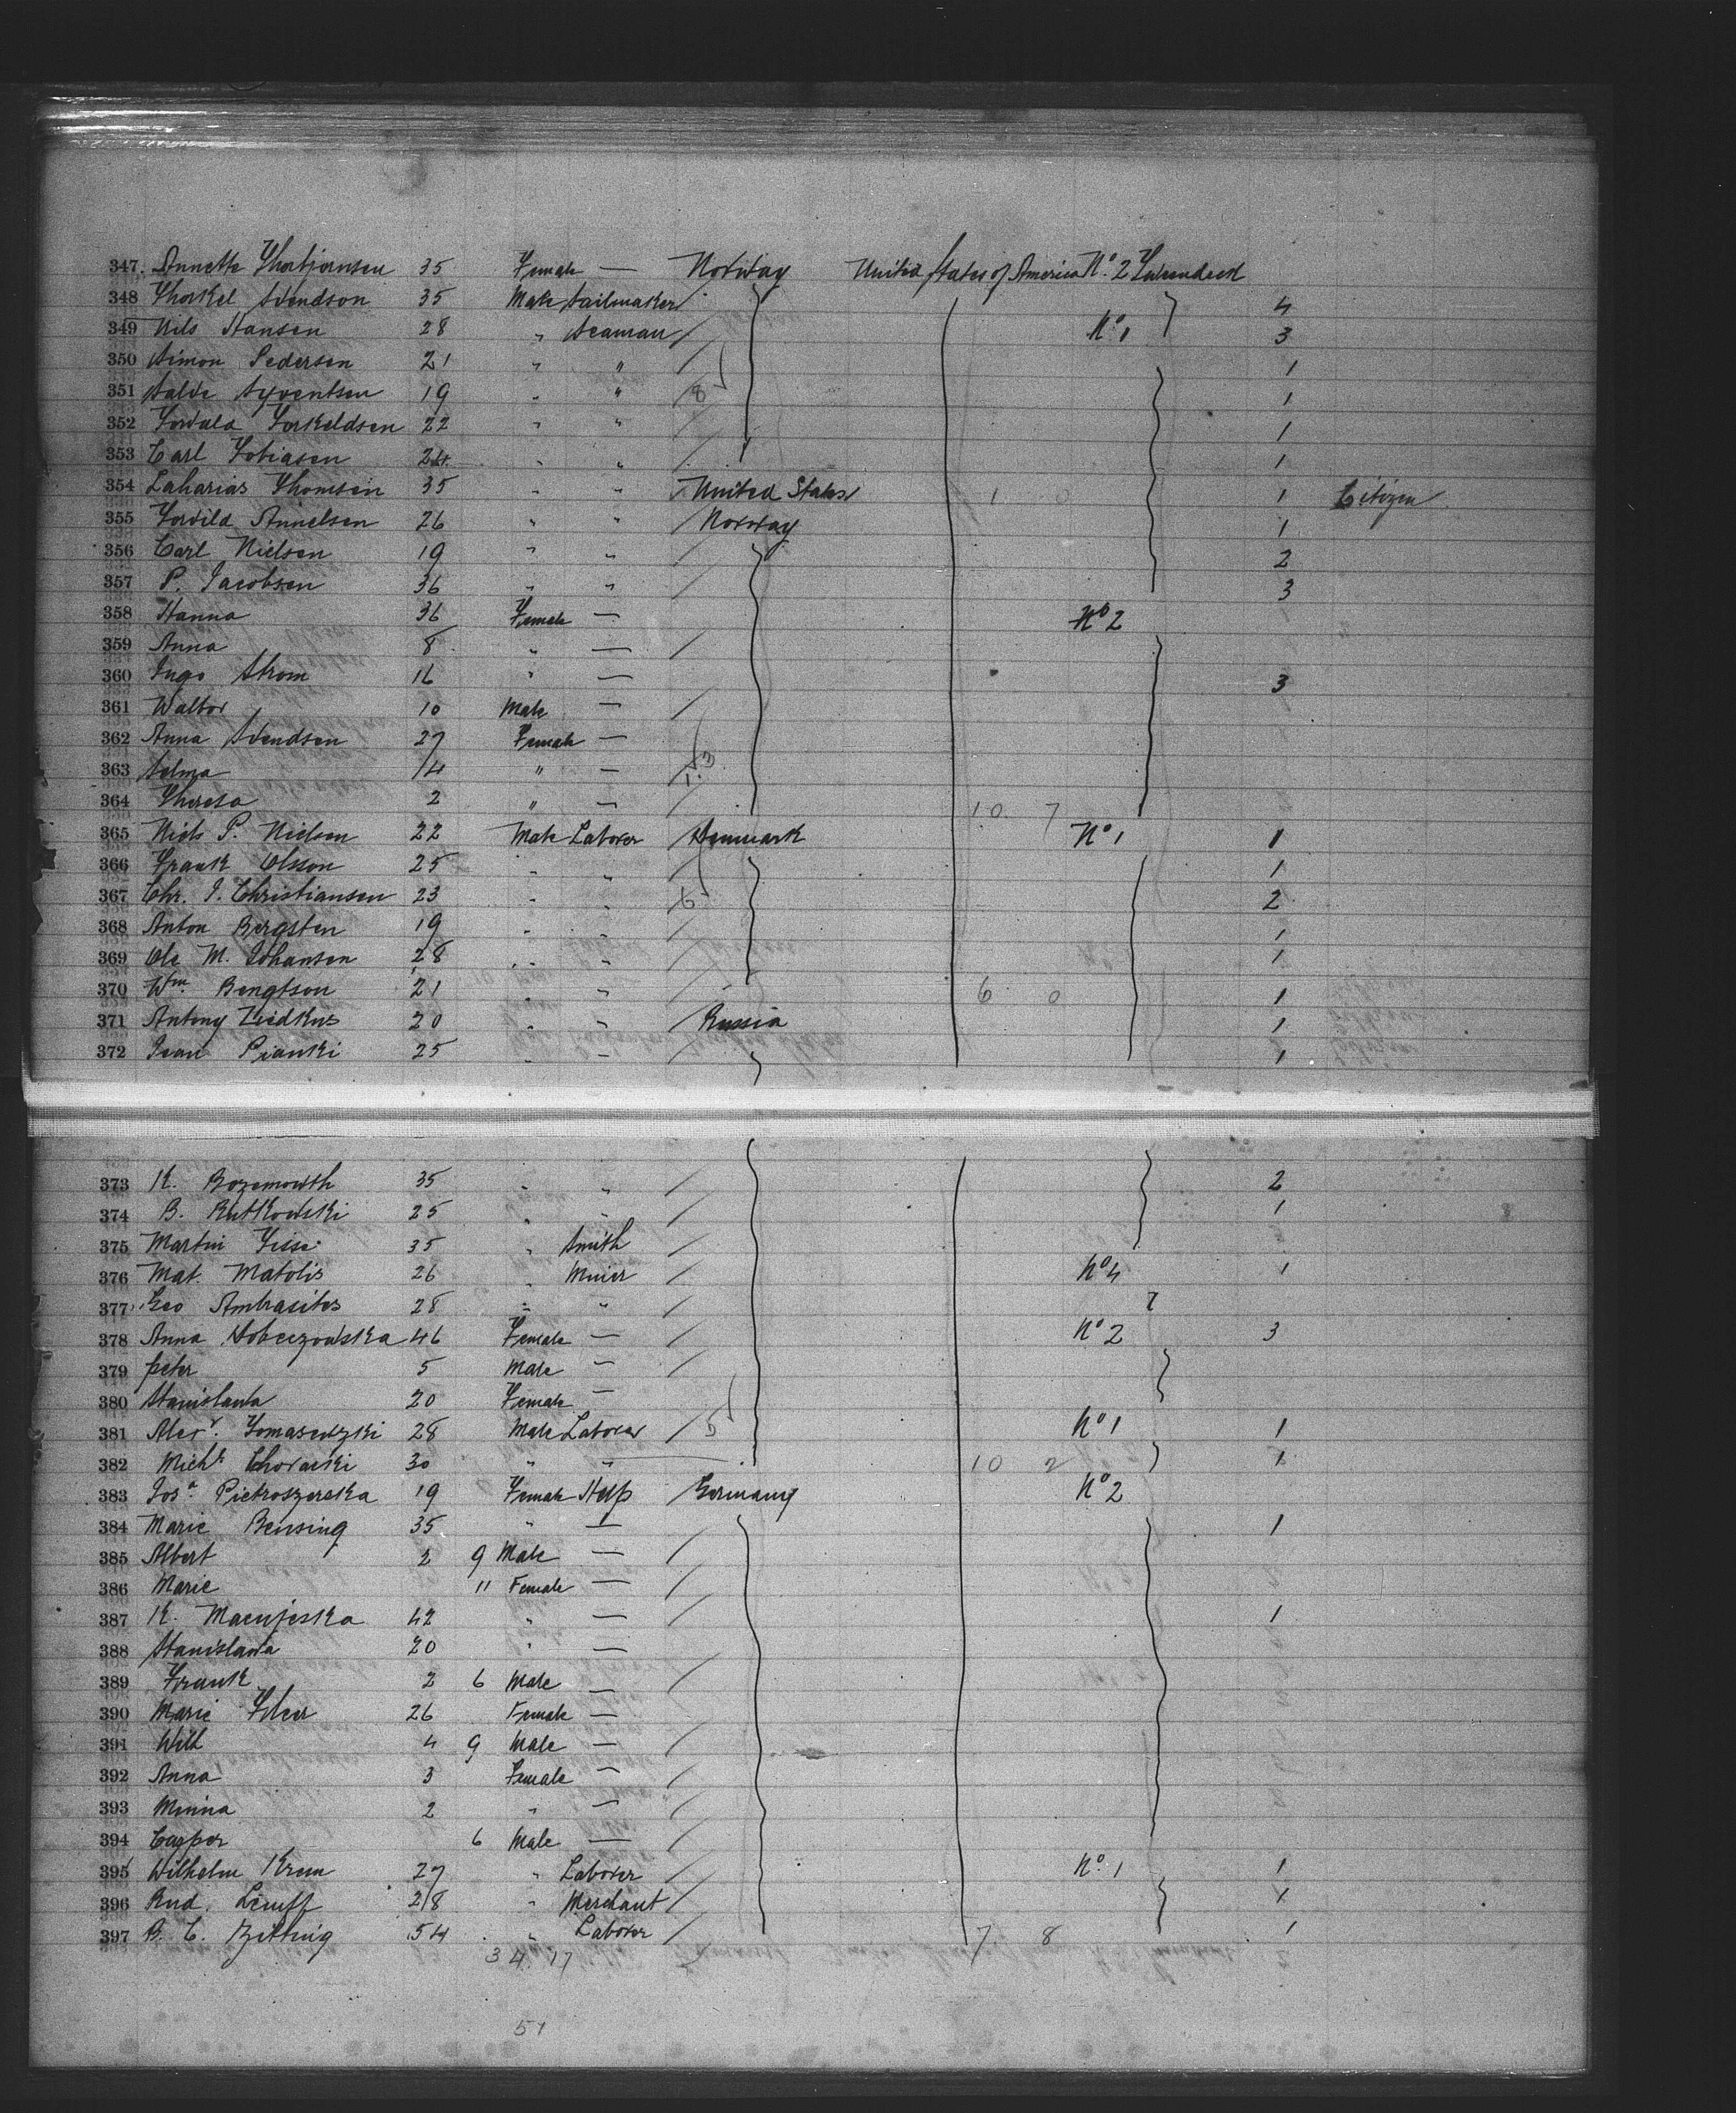 347. Annette Thorbjornsen 35 Female — Norway United States of America No. 2 Tweendeck
348 Thorkel Svendson 35 Male Sailmaker 4
349 Nils Hansen 28 " Seaman No 1 3
350 Simon Pedersen 21 " " 1
351 Salve Syventsen 19 " " 8 1
352 Torvald Torkeldsen 22 " " 1
353 Carl Tobiasen 24 " " 1
354 Zaharias Thomsen 35 " " United States 1 0 1 Citizen
355 Torvild Annelsen 26 " " Norway 1
356 Carl Nielsen 19 " " 2
357 P. Jacobsen 36 " " 3
358 Hanna 36 Female — No 2
359 Anna 8 " —
360 Inga Strom 16 " — 3
361 Walbor 10 Male —
362 Anna Svendsen 27 Female —
363 Selma 4 " —
364 Theresa 2 " — 10 7
365 Niels P. Nielsen 22 Male Laborer Denmark No 1 1
366 Frank Olsson 25 " " 1
367 Chr. J. Christiansen 23 " " 6 2
368 Anton Bergsten 19 " " 1
369 Ole M. Johansen 28 " " 1
370 Wm. Bengtson 21 " " 6 0 1
371 Antony Ziedkus 20 " " Russia 1
372 Ivan Pianki 25 " " 1
373 K. Bozemowth 35 " " 2
374 B. Rutkowski 25 " " 1
375 Martin 35 " Smith
376 Mat. Matolis 26 " Miner No 4 1
377 Geo Ambrasites 28 " "
378 Anna Sobeczowska 46 Female — No 2 3
379 Peter 5 Male —
380 Stanislawa 20 Female —
381 Alexr. Tomasewzki 28 Male Laborer 5 No 1 1
382 Michl. Choracki 30 " " 10 2 1
383 Josa. Pietroszerska 19 Female Help Germany No 2
384 Marie Bensing 35 " — 1
385 Albert 2 9 Male —
386 Marie 11 Female —
387 K. Macujeska 42 " — 1
388 Stanislawa 20 " —
389 Frank 2 6 Male —
390 Marie 26 Female —
391 Will 4 9 Male —
392 Anna 3 Female —
393 Minna 2 " —
394 Casper 6 Male —
395 Wilhelm Krum 27 " Laborer No. 1 1
396 Rud. 28 " Merchant 1
397 B. C. Zitting 54 " Laborer 7 8 1
34 17
51